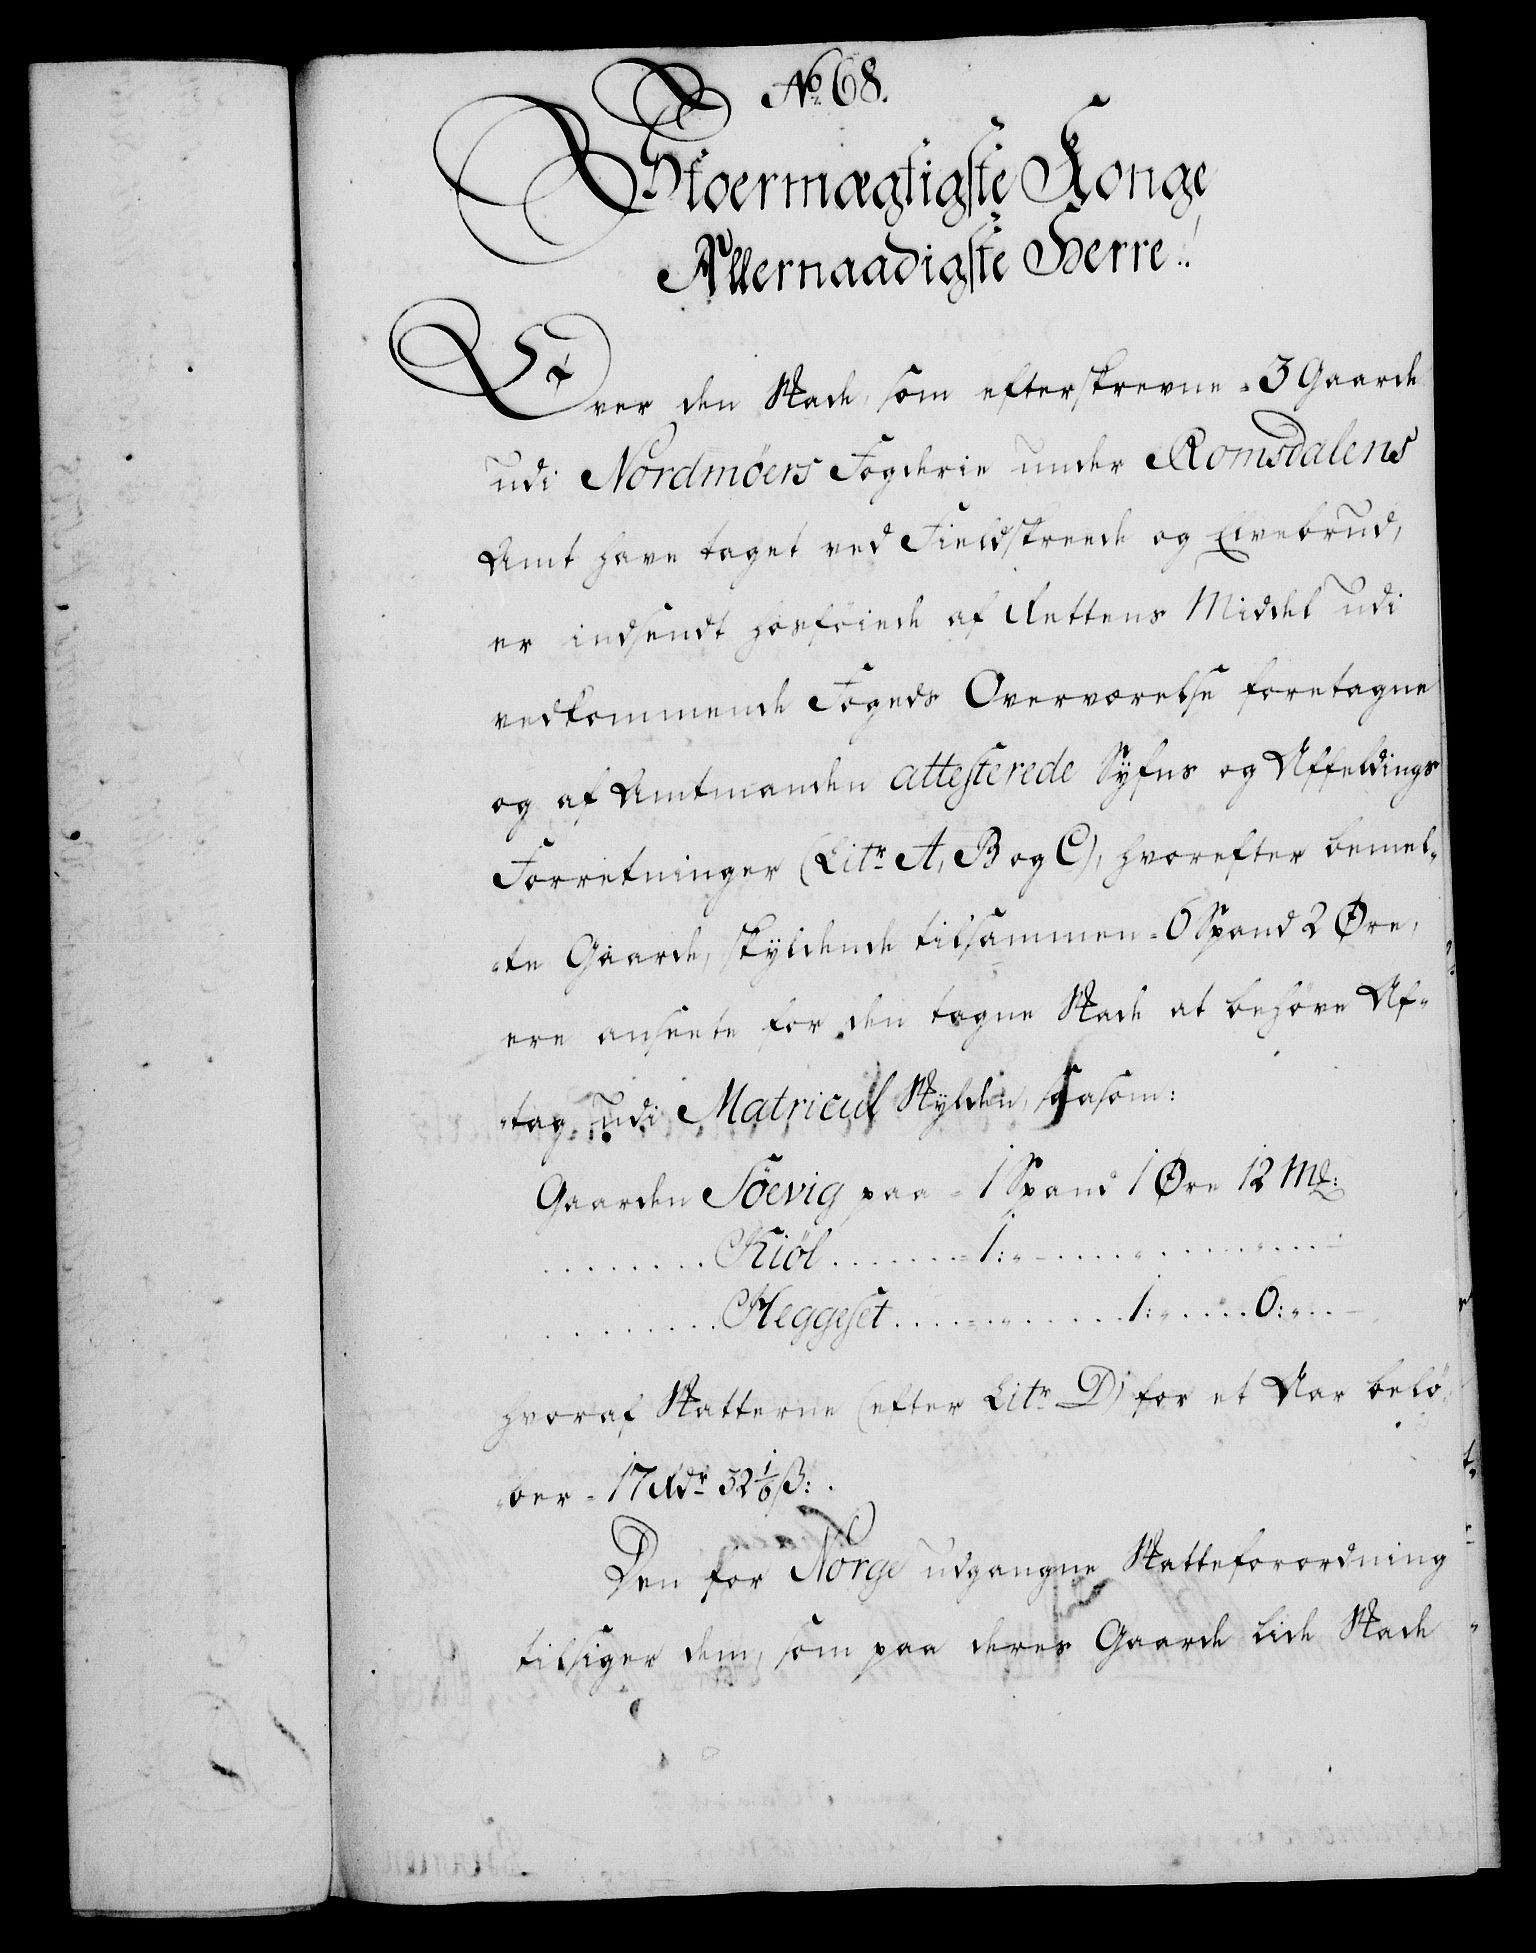 No 68.
Stoermægtigste Konge
Allernaadigste Herre!
Over den Skade, som efterskrevne 3 Gaarde
udi Nordmøers Fogderie under Romsdalens
Amt have taget ved Fieldskreede og Elvebrud,
er indsendt hosføiede af Rettens Middel udi
vedkommende Fogeds Overværelse foretagne
og af Amtmanden attesterede Syfns og Affeldings
Forretninger (Litr A, B og C), hvorefter bemel„
„te Gaarde, skyldende tilsammen 6 Spand 2 Øre,
ere anseete for den tagne Skade at behøve Af„
„tag udi Matricul Skylden, saasom:
Gaarden Söevig paa 1 Spand 1 Øre 12 Ml:
........ Kiöl ........ 1: „ - ..... „ ........ „ ... -
........ Heggeset ..... „ ...... 1: „ ..... 6: „ .. -
hvoraf Skatterne (efter Litr D) for et Aar belö„
„ber 17 Rdr 32 1/6 ß:.
Den for Norge udgangne Skatteforordning
tilsiger dem, som paa deres Gaarde lide Skade